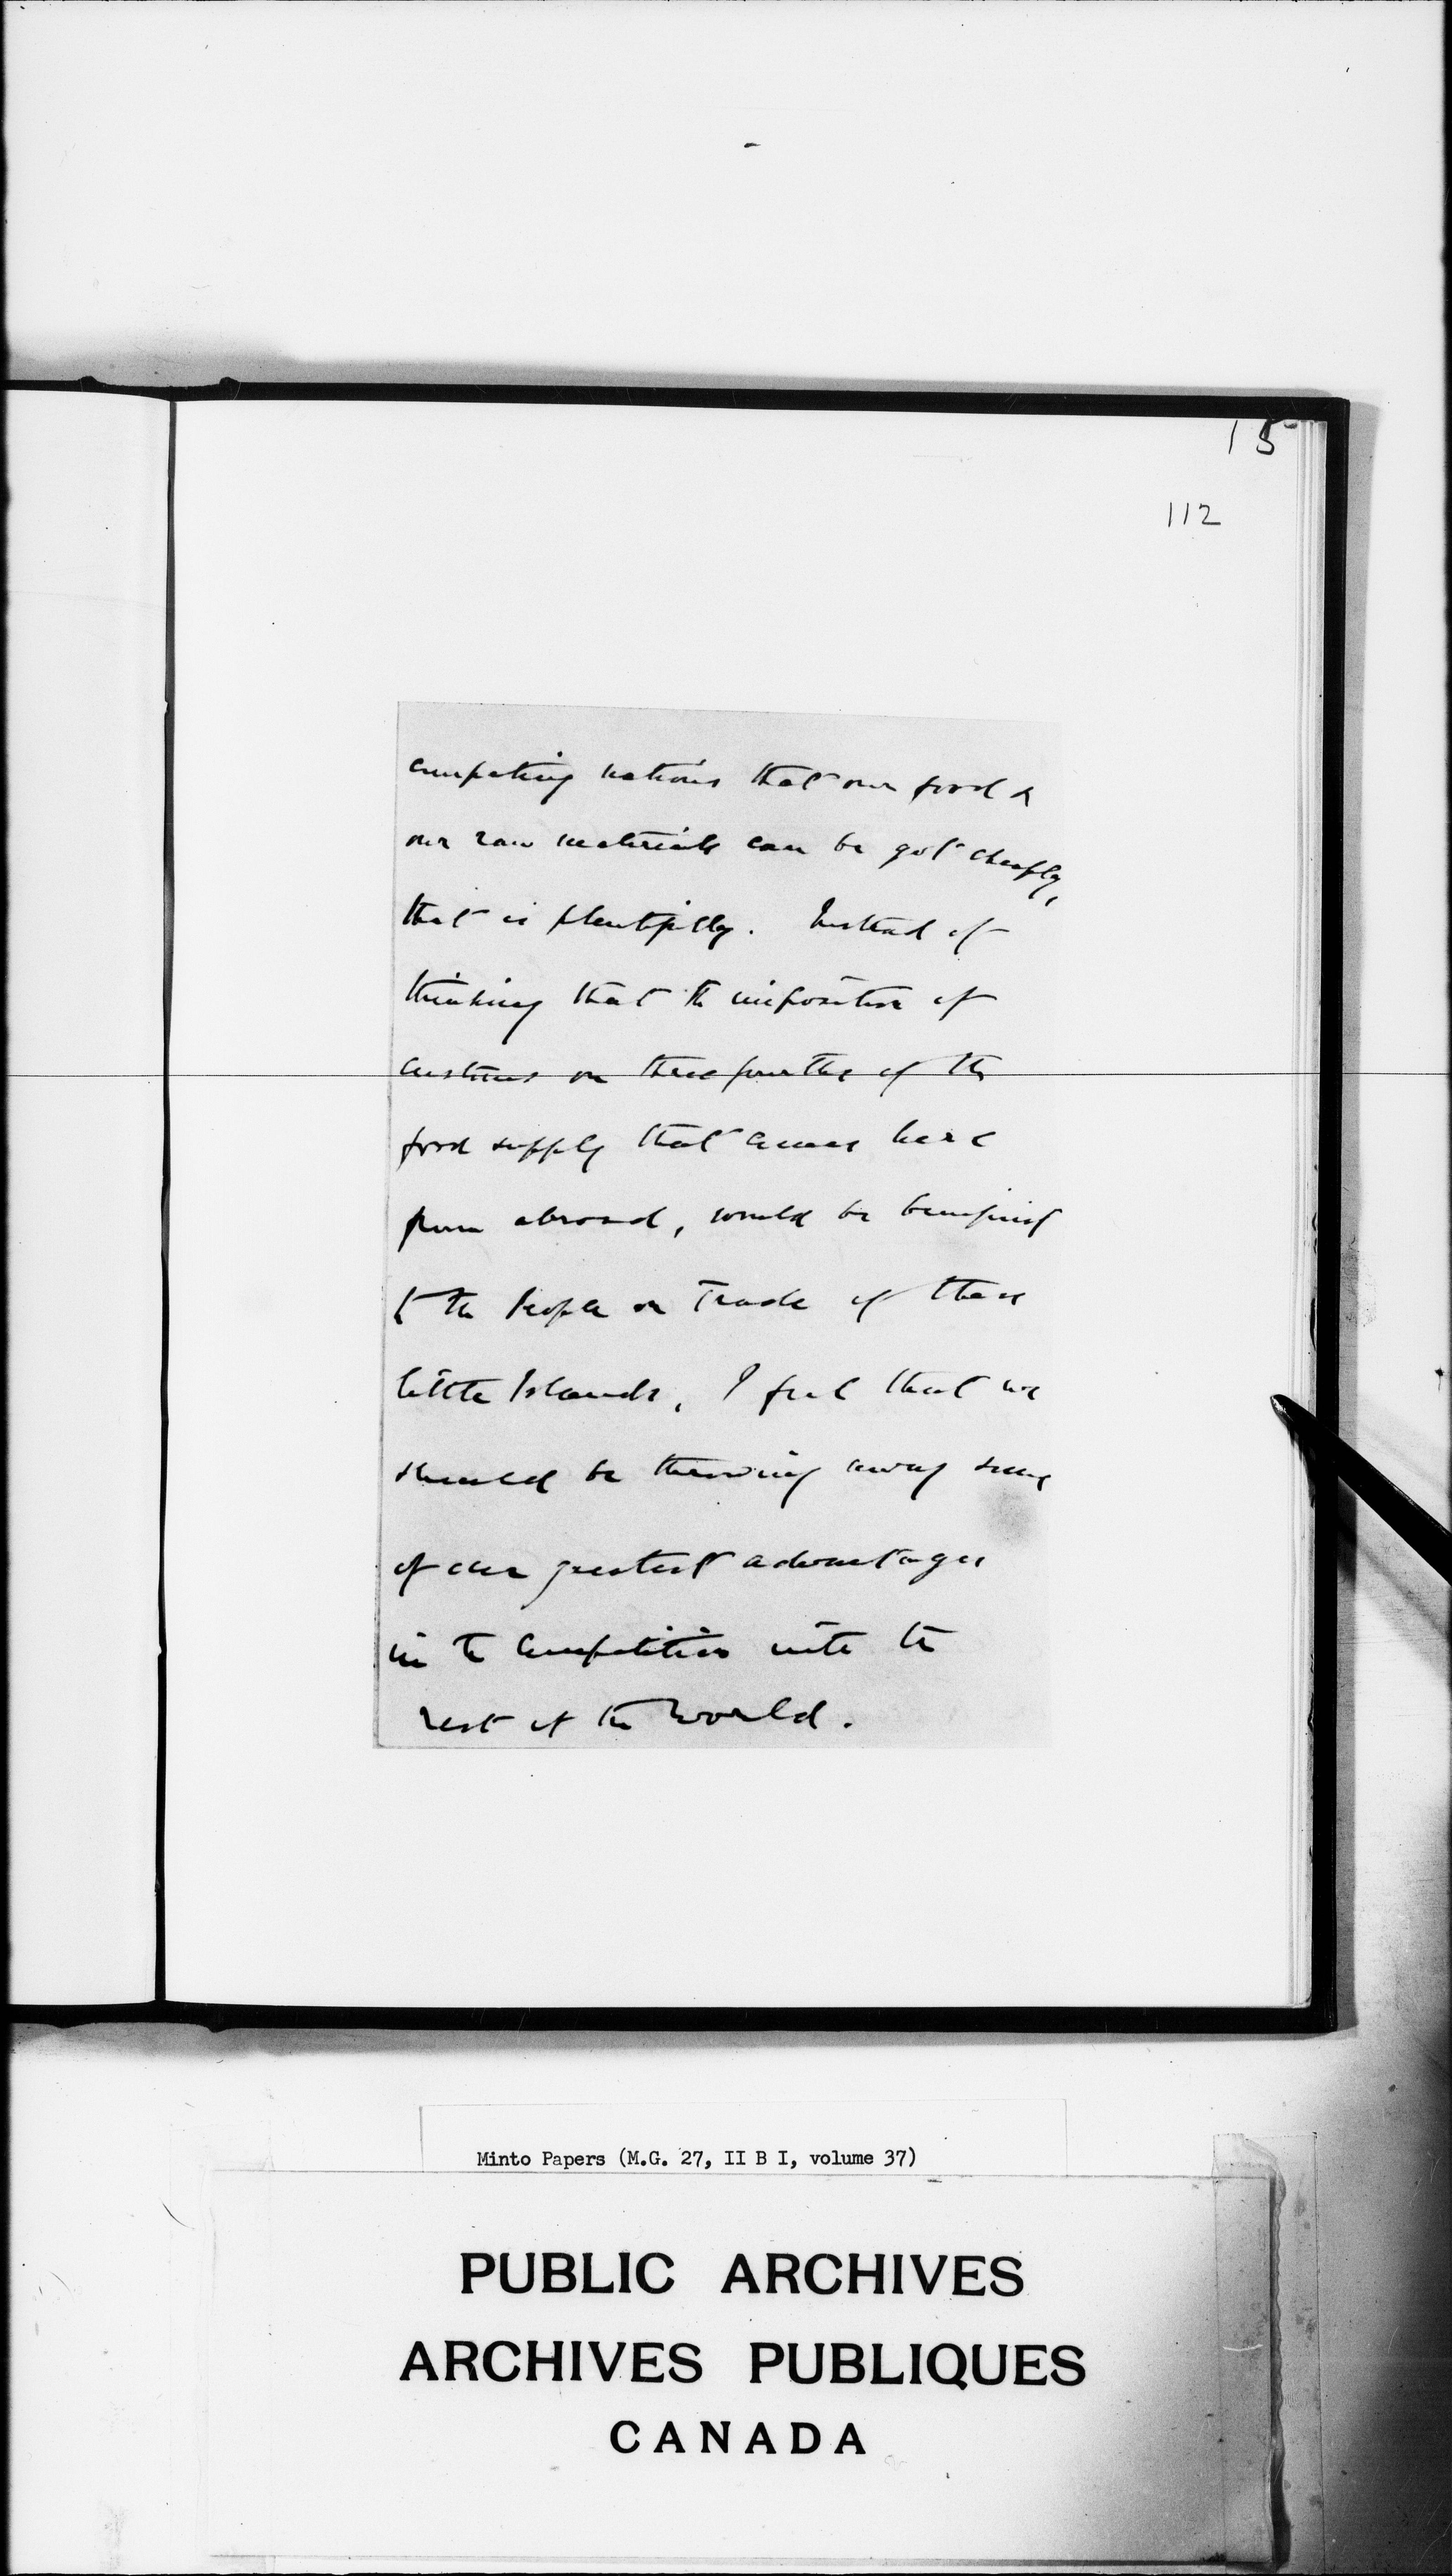 15
112
competing nations that our food &
our raw materials can be got cheaply,
that is plentifully. Instead of
thinking that the imposition of
customs on three fourths of the
food supply that comes here
from abroad, would be
to the People or Trade of these
little Islands, I feel that we
should be throwing away some
of our greatest advantages
in the Competition with the
rest of the World.
Minto Papers (M.G. 27, II B I, volume 37)
PUBLIC ARCHIVES
ARCHIVES PUBLIQUES
CANADA